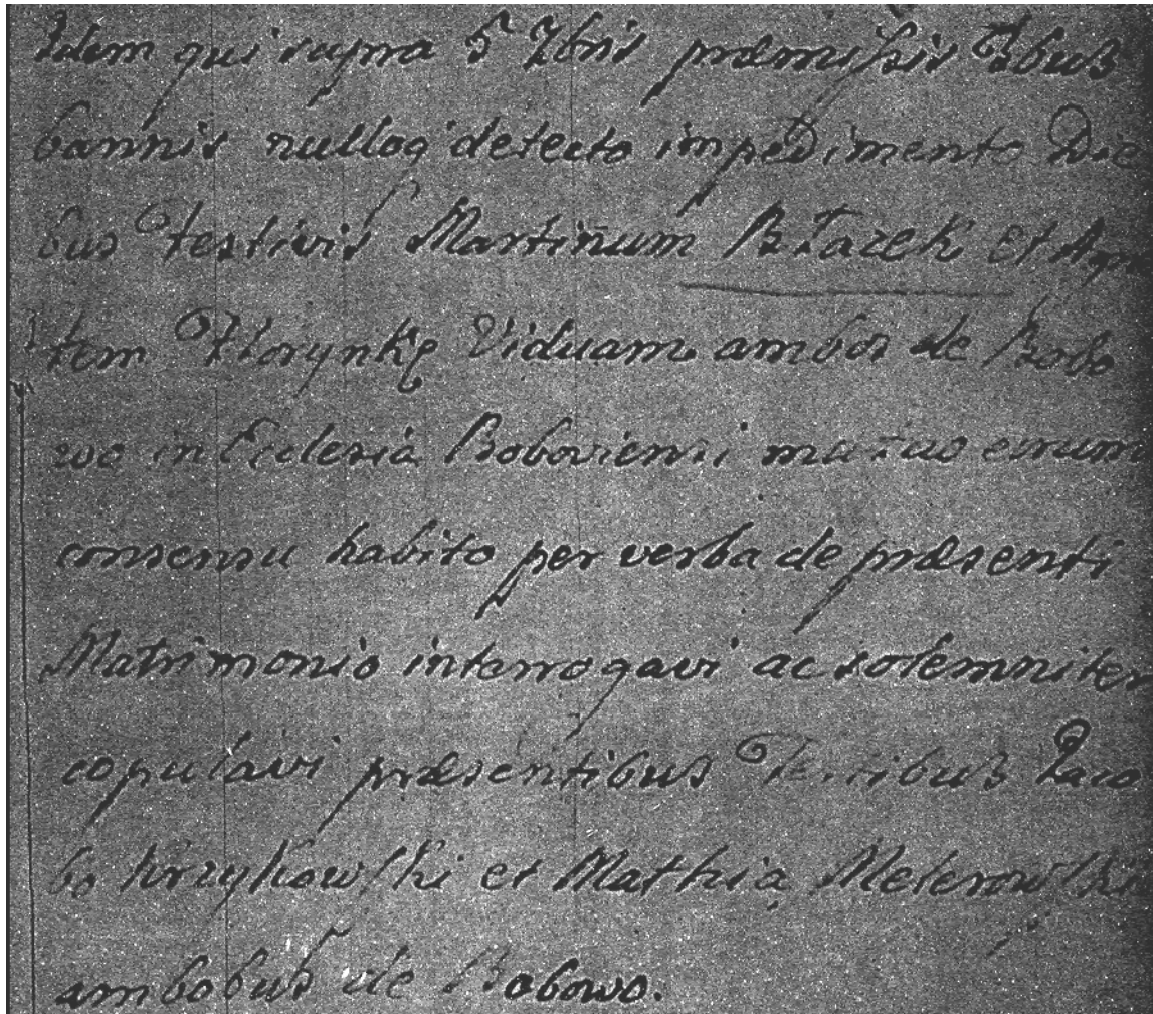 Idem qui supra 5 7bris præmissis Tribus
bannis nulloq detecto impedimento Die
bus festivis Martinum Błazek et Agne
tem Florynkę Viduam ambos de Bobo
wo in Ecclesia Boboviensi mutuo eorum
consensu habito per verba de præsenti
Matrimonio interrogavi ac solemniter
copulavi præsentibus Testibus Jaco
bo Krzykowski et Mathia
ambobus de Bobowo.